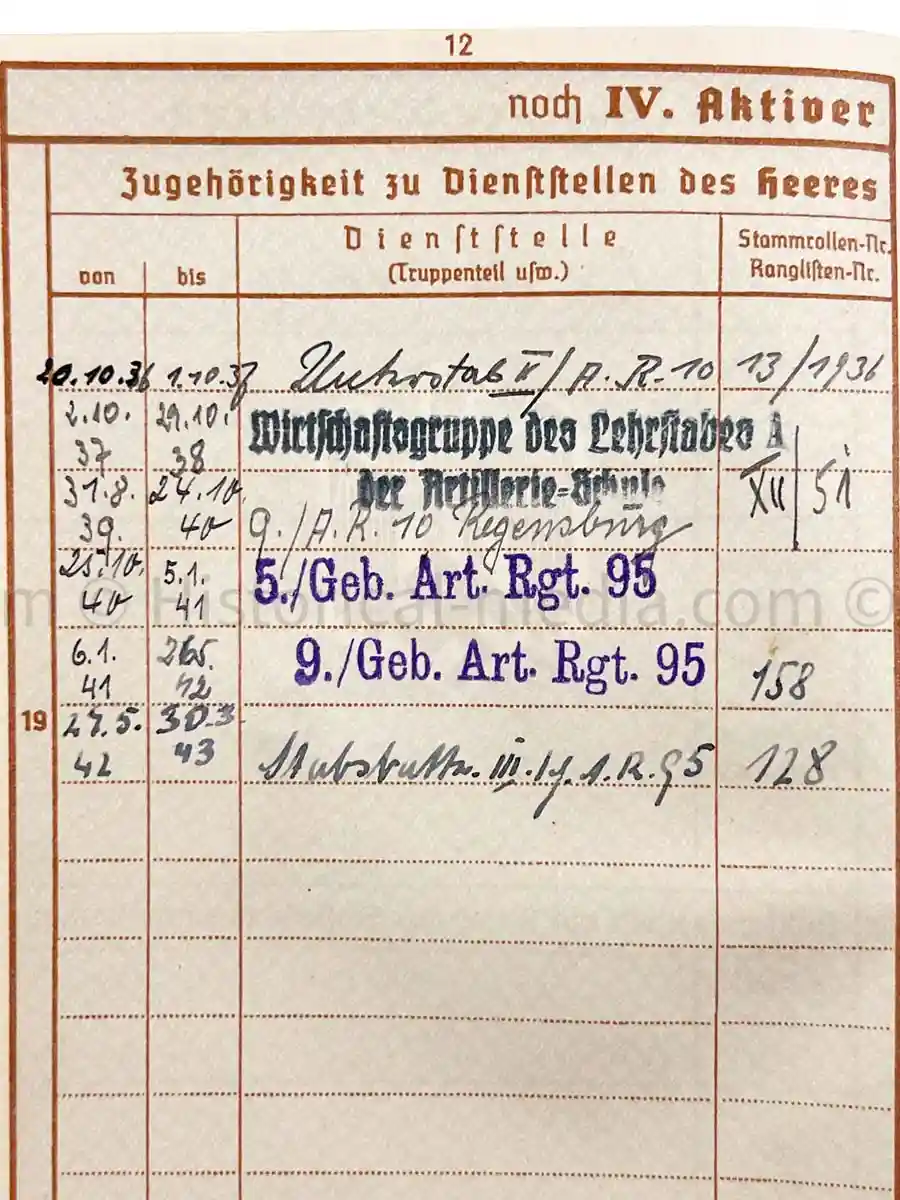 12
noch IV. Aktiver
Zugehörigkeit zu Dienststellen des Heeres
von bis
Dienststelle
(Truppenteil usw.)
Stammrollen-Nr.
Ranglisten-Nr.
20.10.36 1.10.37 II/A.R.10 13/1936
2.10. 29.10. Wirtschaftsgruppe des Lehrstabes A
37 38
31.8. 24.10. der Artillerie-Schule XII 51
39. 40 9./A.R. 10 Regensburg
25.10. 5.1. 5./Geb. Art. Rgt. 95
40 41
m © Historical-media.com ©
6.1. 26.5. 9./Geb. Art. Rgt. 95 158
41 42
19 27.5. 30.3.
42 43 Stabsbattr. III./G.A.R.95 128